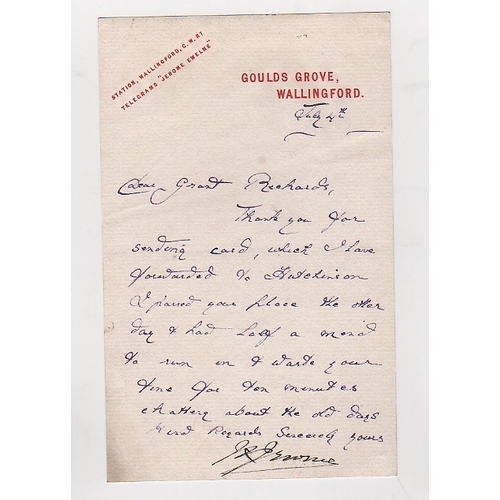 STATION, WALLINGFORD, G.W.RY
TELEGRAMS "JEROME EWELME"
GOULDS GROVE,
WALLINGFORD.
July 4th
Dear Grant Richards,
Thank you for
sending card, which I have
forwarded to Hutchinson
I passed your place the other
day & had half a mind
to run in & waste your
time for ten minutes
chattering about the old days
Kind Regards Sincerely yours
JKJerome